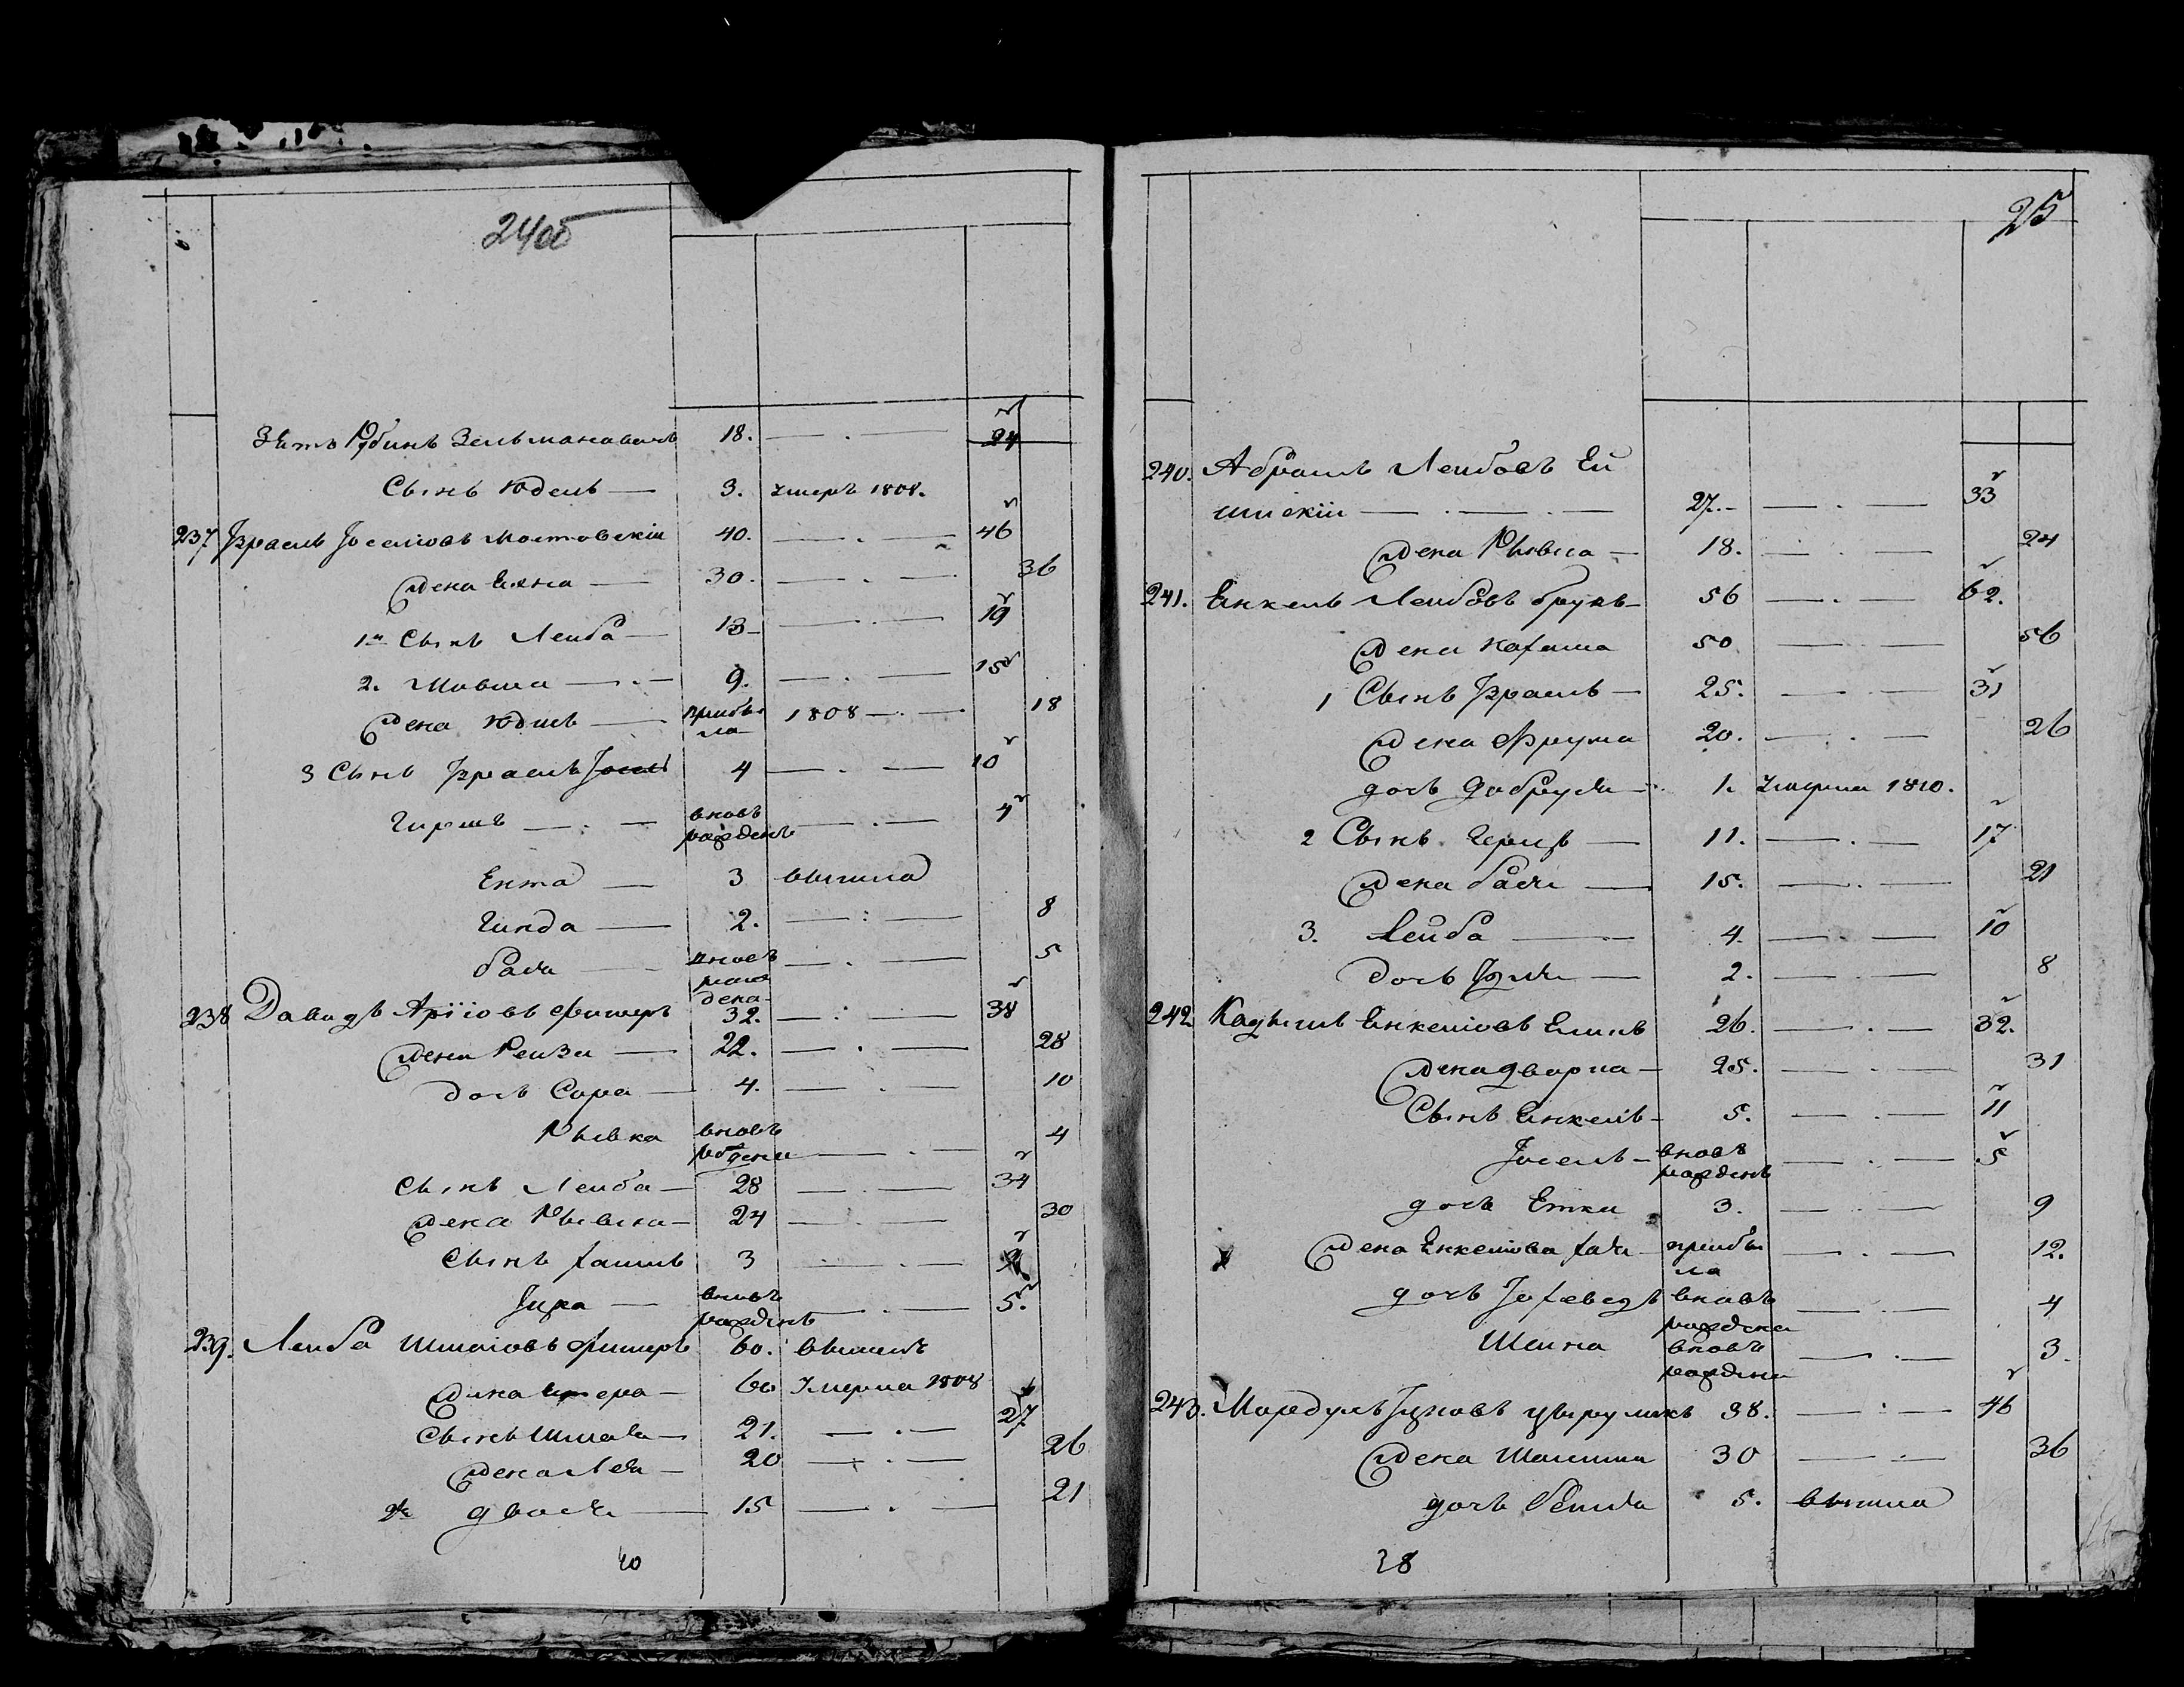 24об
Зять Рубинъ Зельмановичъ 18. — . — 24
Сынъ Юдель — 3. умеръ 1808.
237. Израель Іоселіовъ Мостовскій 40. — . — 46
жена Ехна — 30. — . — 36
1й Сынъ Лейба — 13 — . — 19
2. Мовша — . — 9. — . — 15
жена Юдись — прибы
ла 1808 — . — 18
3 Сынъ Израель 4 — . — 10
Гиршъ — . — вновь
рожденъ — . — 4
Ента — 3 вышла
Гинда — 2. — : — 8
Бася — вновь
рож
дена — . — 5
238 Давидъ Аріовъ Фишеръ 32. — . — 38
жена Рейза — 22. — . — 28
дочь Сора — 4. — . — 10
Рывка вновь
рождена — . — 4
Сынъ Лейба — 28 — . — 34
жена Рывка — 24 — . — 30
Сынъ Хаимъ 3 — . — 9
Іцка — вновь
рожденъ — . — 5.
239. Лейба Фишеръ 60. вышелъ
жена — 60 умерла 1808
Сынъ — 21. — . — 27
жена Лея — 20 — . — 26
Двося — 15 — . — 21
40
25
240. Абрамъ Лейбовъ Ей
шискій — . — . — 27. — . — 33
жена Рывка — 18. — . — 24
241. Енкель Лейбовъ — 56 — . — 62.
жена 50 — . — 56
1 Сынъ Израель — 25. — . — 31
жена Фрума 20. — . — 26
дочь Добруся — 1. умерла 1810.
2 Сынъ Герцъ — 11. — . — 17
жена Бася — 15. — . — 21
3. Лейба — 4. — . — 10
дочь — 2. — . — 8
242 Кадышъ Енкеліовъ 26. — . — 32.
жена Двойра — 25. — . — 31
Сынъ Енкель — 5. — . — 11
Іосель — вновь
рожденъ — . — 5
дочь Етка 3. — . — 9
жена Енкеліова Хая — прибы
ла — . — 12.
дочь вновь
рождена — . — 4
Шейна вновь
рождена — . — 3
243. Мордухъ Іцковъ 38. — : — 46
жена 30 — . — 36
дочь 5. вышла
28